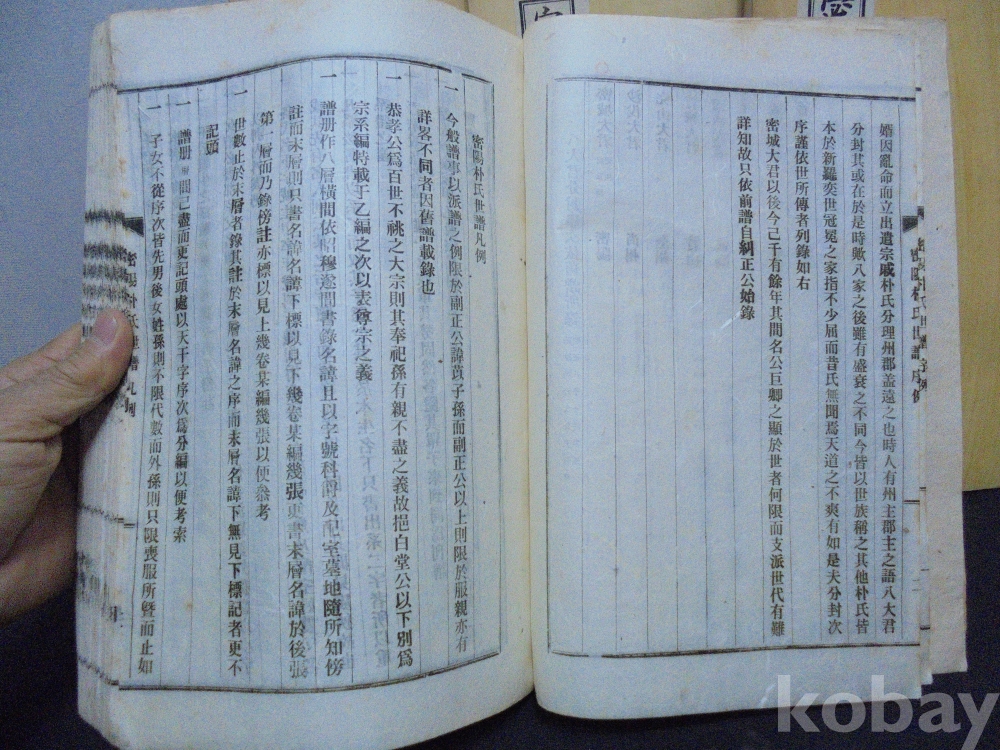 婚因亂命而立出遺宗戚朴氏分理州郡盖遠之也時人有州主郡主之語八大君
分封其或在於是時歟八家之後雖有盛衰之不同今皆以世族稱之其他朴氏皆
本於新羅奕世冠冕之家指不少屈而昔氏無聞焉天道之不爽有如是夫分封次
序謹依世所傳者列錄如右
密城大君以後今已千有餘年其間名公巨卿之顯於世者何限而支派世代有難
詳知故只依前譜自糾正公始錄
密陽朴氏世譜凡例
一 今般譜事以派譜之例限於副正公諱蕡子孫而副正公以上則限於服親亦有
詳畧不同者因舊譜載錄也
一 恭孝公爲百世不祧之大宗則其奉祀係有親不盡之義故挹白堂公以下別爲
宗系編特載于乙編之次以表尊宗之義
一 譜册作八層橫間依昭穆逐間書錄名諱且以字號科爵及配室墓地隨所知傍
註而末層則只書名諱名諱下標以見下幾卷某編幾張更書末層名諱於後張
第一層而乃錄傍註亦標以見上幾卷某編幾張以便叅考
一 世數止於末層者錄其註於末層名諱之序而末層名諱下無見下標記者更不
記頭
一 譜册 間已盡而更記頭處以天干字序次爲分編以便考索
一 子女不從序次皆先男後女姓孫則不限代數而外孫則只限喪服所曁而止如
密陽朴氏世譜凡例
kobay